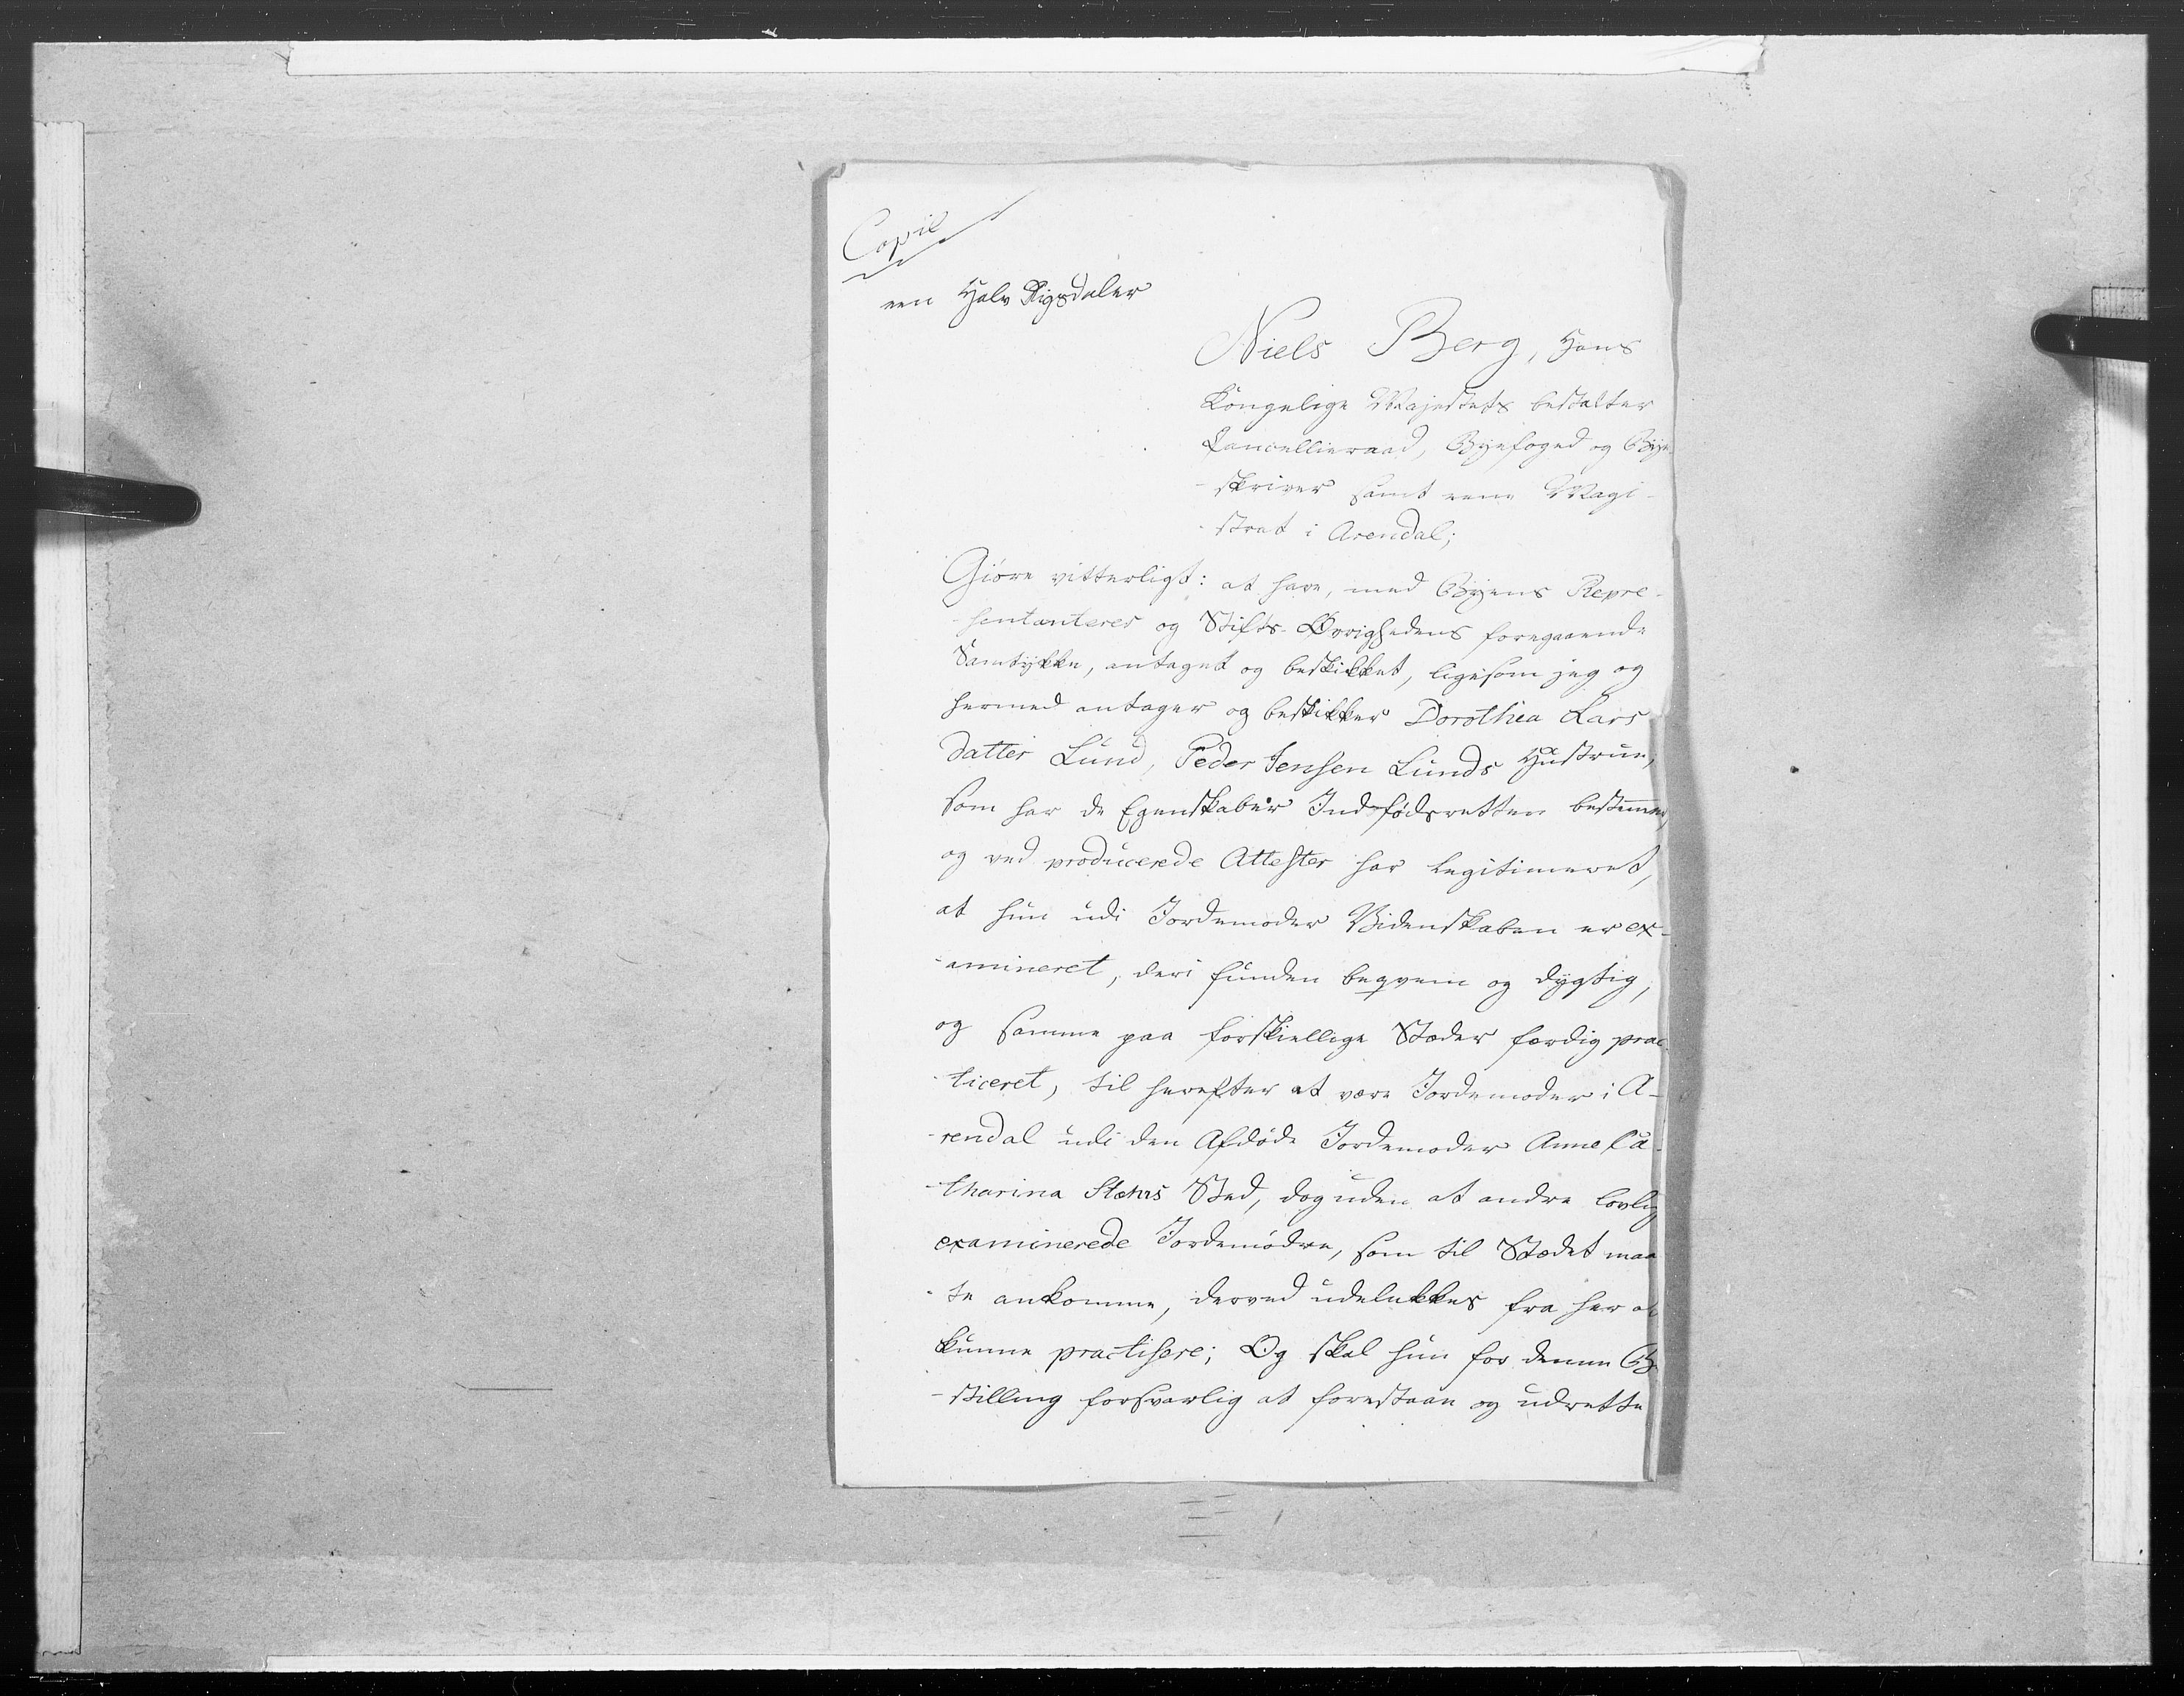 Copie
een Halv Rigsdaler
Niels Berg, Hans
Kongelige Majestets bestalter
Cancellieraad, Byefoged og Bye-
-skriver samt eene Magi-
-strat i Arendal;
Giöre vitterligt: at have, med Byens Repre-
-sentanteres og Stifts-Øvrighedens foregaaende
Samtykke, antaget og beskikket, ligesom jeg og
hermed antager og beskikker Dorothea Lars
datter Lund, Peder Jensen Lunds Hustrue,
som har de Egenskaber Indfödsretten bestemmer,
og ved producerede Attester har legitimeret,
at hun udi Jordemoder Videnskaben er ex-
-amineret, deri funden beqvem og dygtig,
og samme paa forskiellige Stæder færdig prac-
-ticeret, til herefter at være Jordemoder i A-
-rendal udi den Afdöde Jordemoder Anne Ca-
-tharina Stæhrs Sted, dog uden at andre lovlig
examinerede Jordemödre, som til Stædet maa
-te ankomme, derved udelukkes fra her at
kunne practisere; Og skal hun for denne Be
-stilling forsvarlig at forestaae og udrette